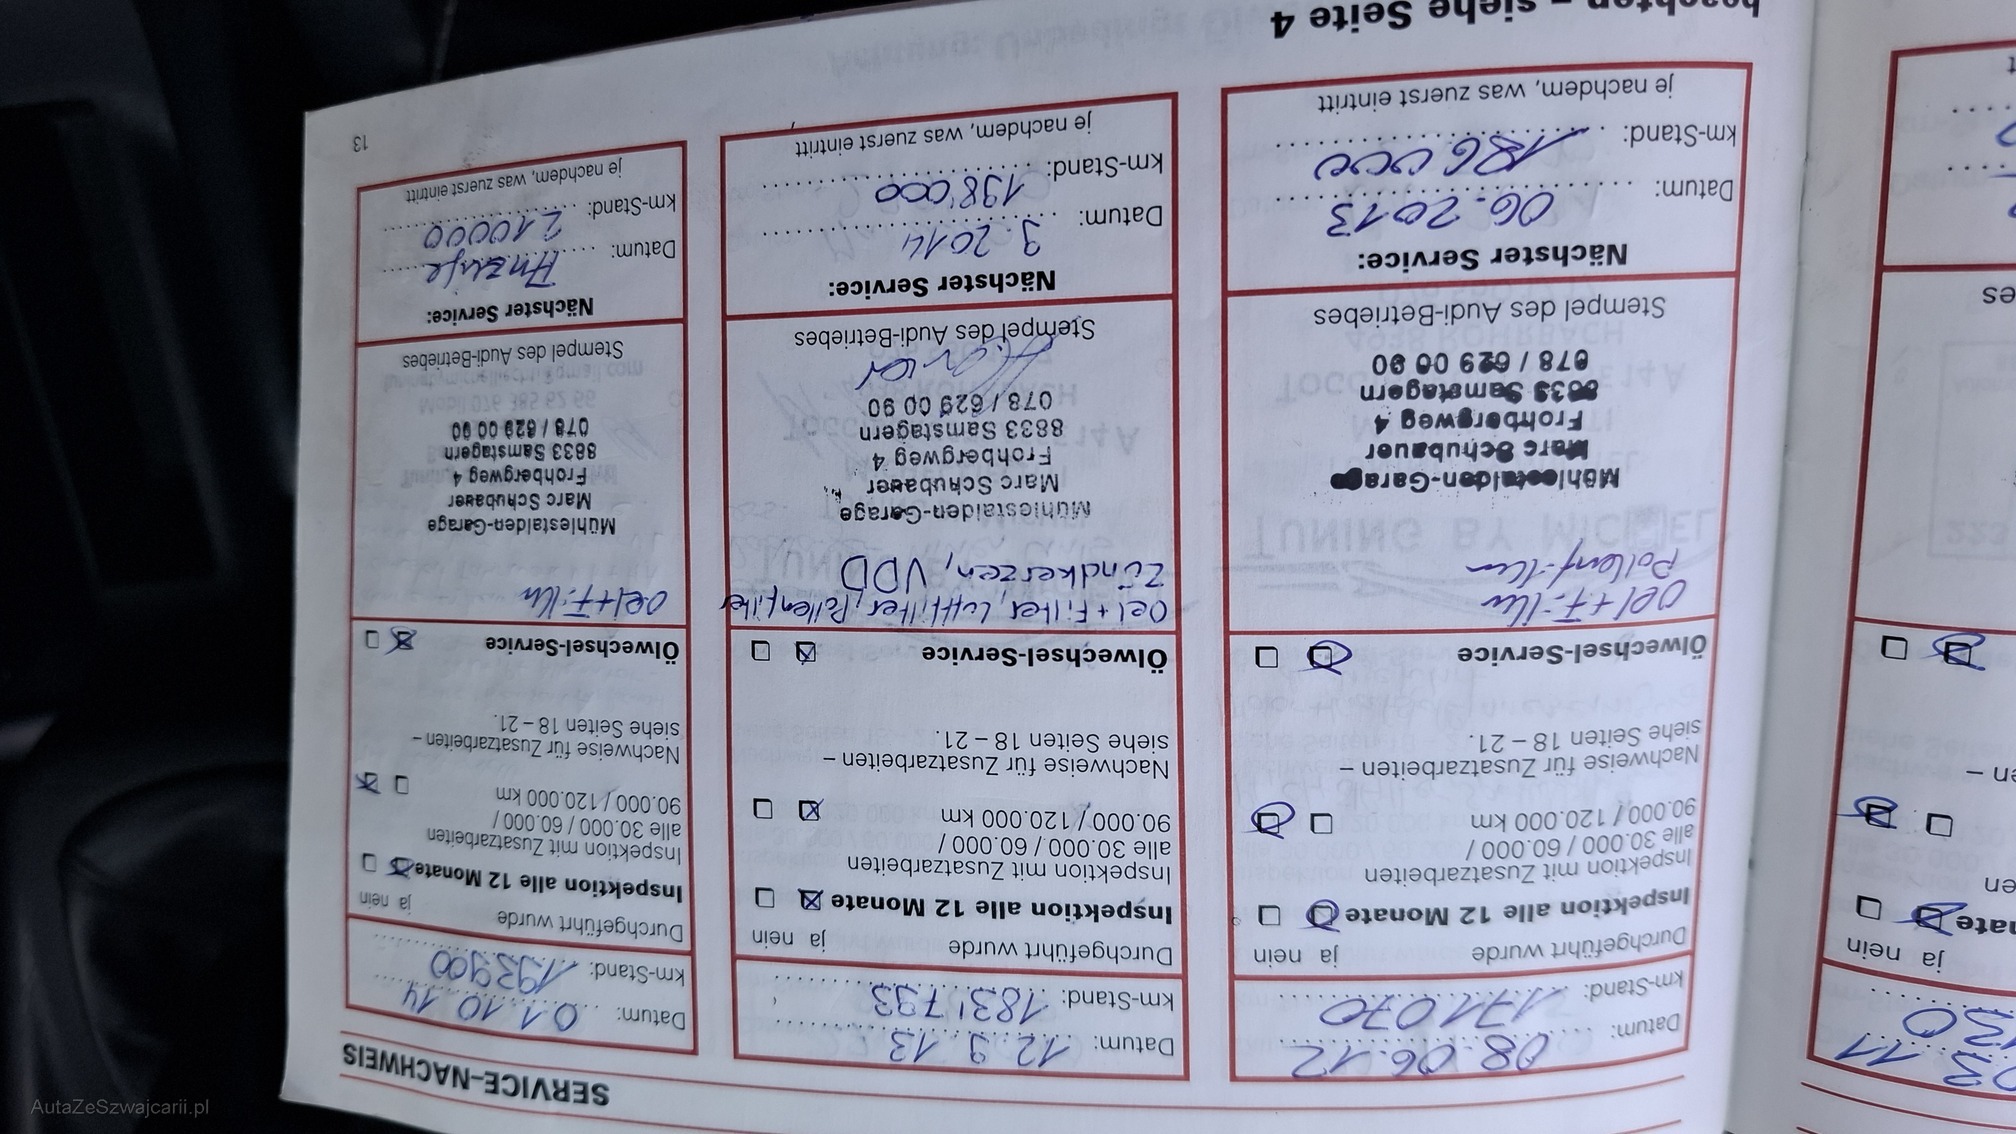 SERVICE-NACHWEIS
Datum: 08.06.12
km-Stand: 171070
Durchgeführt wurde ja nein
Inspektion alle 12 Monate
Inspektion mit Zusatzarbeiten
alle 30.000 / 60.000 /
90.000 / 120.000 km
Nachweise für Zusatzarbeiten –
siehe Seiten 18 – 21.
Ölwechsel-Service
Oel + Filter
Pollenfilter
Mühlestalden-Garage
Marc Schubauer
Frohbergweg 4
8833 Samstagern
078 / 629 00 90
Stempel des Audi-Betriebes
Nächster Service:
Datum: 06.2013
km-Stand: 186000
je nachdem, was zuerst eintritt
Datum: 12.9.13
km-Stand: 183'793
Durchgeführt wurde ja nein
Inspektion alle 12 Monate
Inspektion mit Zusatzarbeiten
alle 30.000 / 60.000 /
90.000 / 120.000 km
Nachweise für Zusatzarbeiten –
siehe Seiten 18 – 21.
Ölwechsel-Service
Oel + Filter, Luftfilter, Pollenfilter
Zündkerzen, VDD
Mühlestalden-Garage
Marc Schubauer
Frohbergweg 4
8833 Samstagern
078 / 629 00 90
Stempel des Audi-Betriebes
Nächster Service:
Datum: 9.2014
km-Stand: 198'000
je nachdem, was zuerst eintritt
Datum: 01.10.14
km-Stand: 193900
Durchgeführt wurde ja nein
Inspektion alle 12 Monate
Inspektion mit Zusatzarbeiten
alle 30.000 / 60.000 /
90.000 / 120.000 km
Nachweise für Zusatzarbeiten –
siehe Seiten 18 – 21.
Ölwechsel-Service
Oel + Filter
Mühlestalden-Garage
Marc Schubauer
Frohbergweg 4
8833 Samstagern
078 / 629 00 90
Stempel des Audi-Betriebes
Nächster Service:
Datum: Anzeige
km-Stand: 210000
je nachdem, was zuerst eintritt
13
– siehe Seite 4
ja nein
AutaZeSzwajcarii.pl